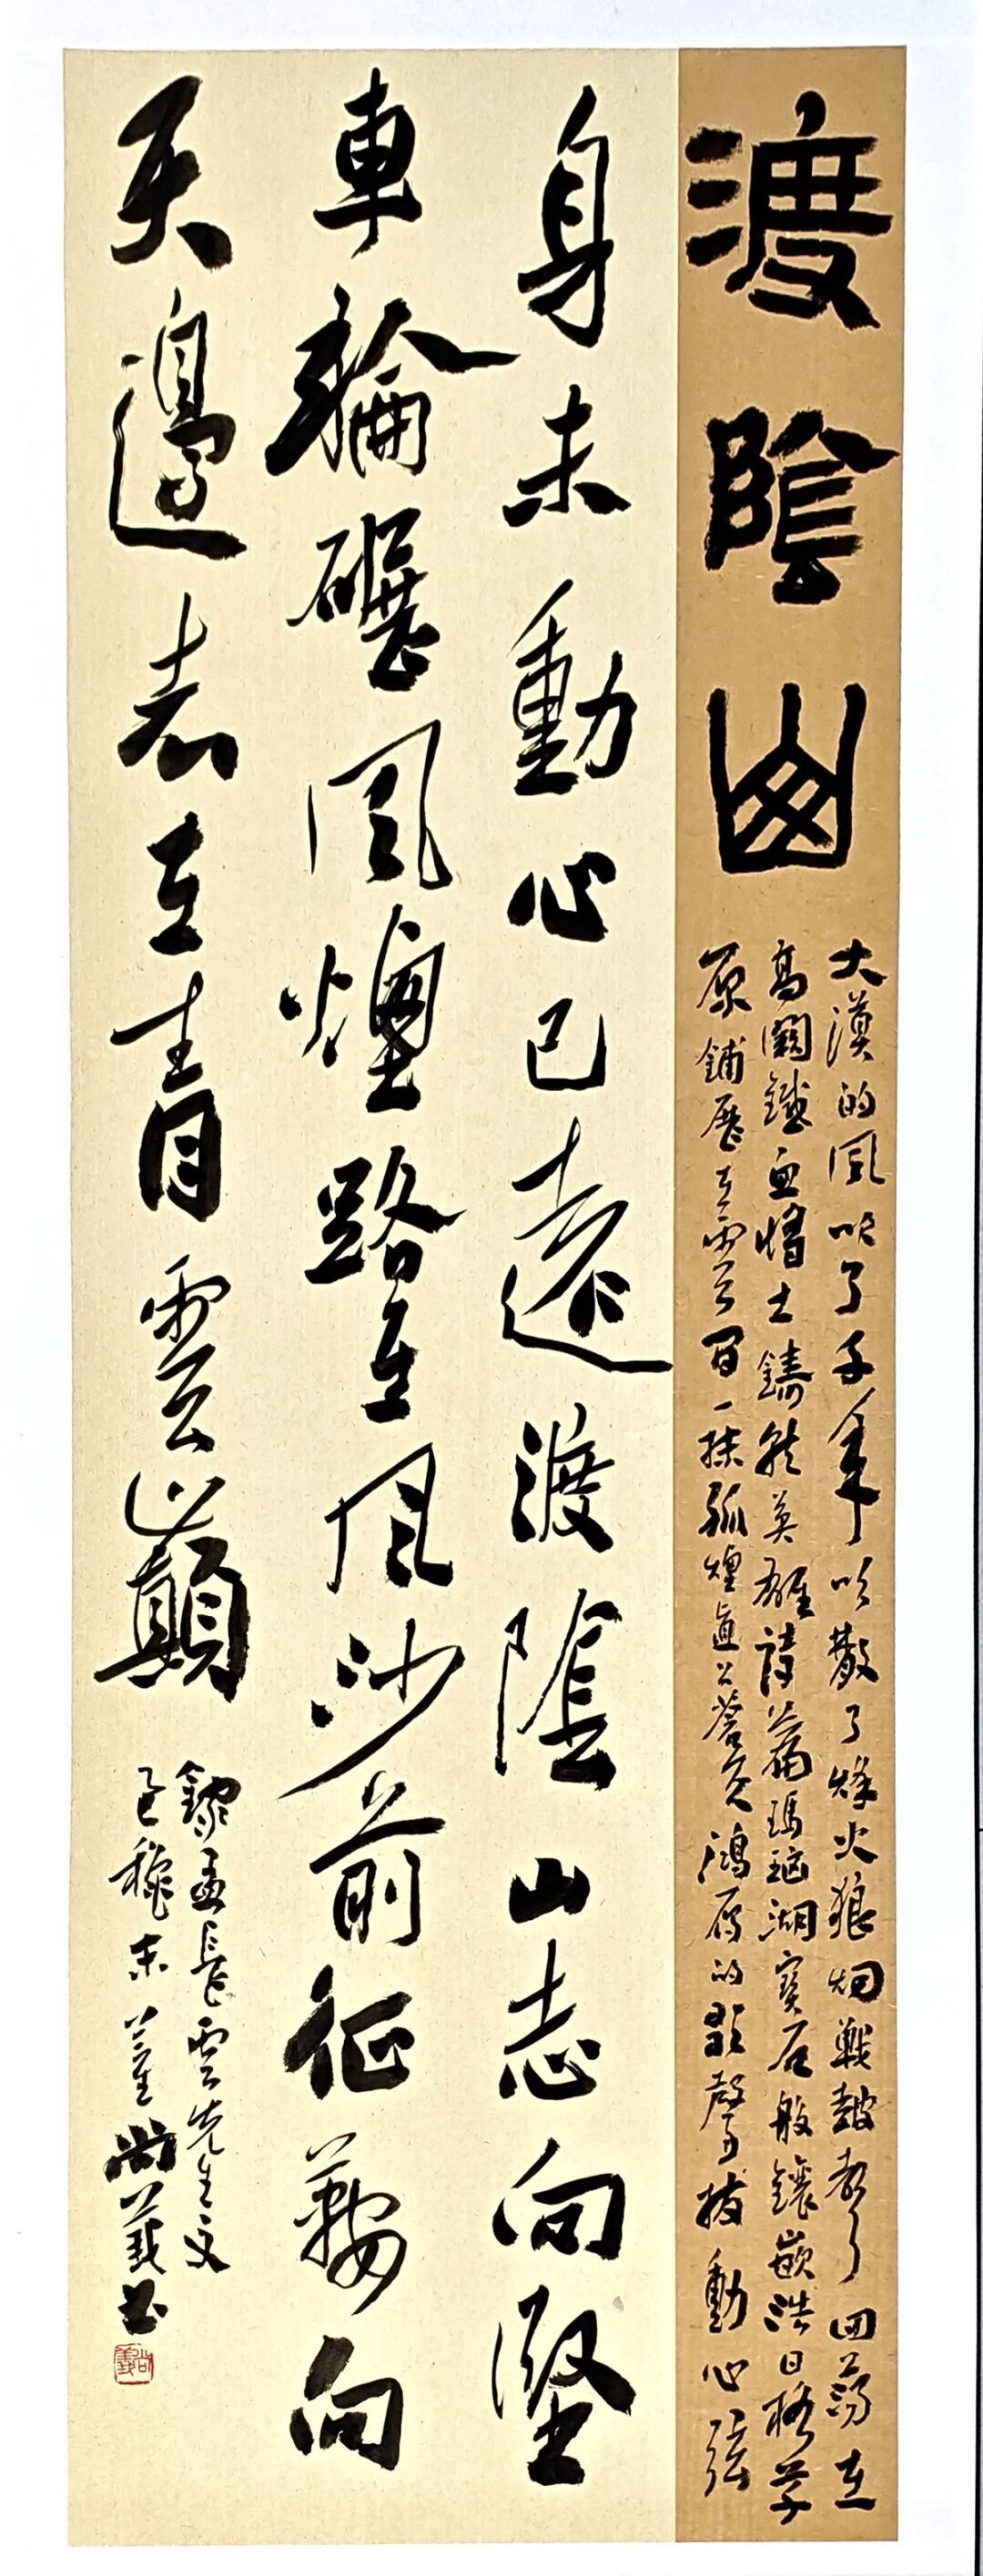 渡陰山
大漠的風吹了千年吹散了烽火狼烟戰鼓聲了回荡在
高闕鐵血將士鑄就英雄詩篇瑪瑙湖寶石般鑲嵌浩日格草
原鋪展在雲間一抹孤煙直公蒼矣鴻雁的歌聲撥動心弦
身未動心已遠渡陰山志向堅
車輪碾風煙路在風沙前征鞍向
天邊志在青雲巔
錄孟長雲先生文
乙穐末董尚義书
尚義